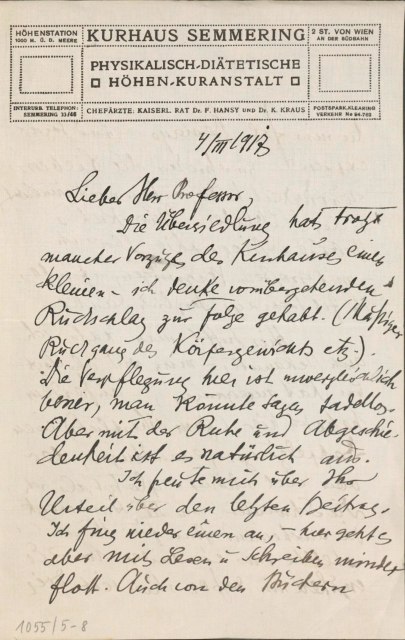 HÖHENSTATION
1000 M. Ü. D. MEERE
INTERURB. TELEPHON:
SEMMERING 13/65
KURHAUS SEMMERING
PHYSIKALISCH-DIÄTETISCHE
HÖHEN-KURANSTALT
CHEFÄRZTE: KAISERL. RAT Dr. F. HANSY und Dr. K. KRAUS
2 ST. VON WIEN
AN DER SÜDBAHN
POSTSPARK.-KLEARING
VERKEHR No 94.762
4/III 1917
Lieber Herr Professor,
Die Übersiedlung hat trotz
mancher Vorzüge des Kurhauses einen
kleinen - ich denke vorübergehenden
Rückschlag zur Folge gehabt. (Mäßiger
Rückgang des Körpergewichts etz.).
Die Verpflegung hier ist unvergleichlich
besser, man könnte sagen tadellos.
Aber mit der Ruhe und Abgeschie-
denheit ist es natürlich aus.
Ich freute mich über Ihr
Urteil über den letzten Beitrag.
Ich fing wieder einen an, - hier geht es
aber mit Lesen u Schreiben minder
flott. Auch von den Büchern
1055/5-8